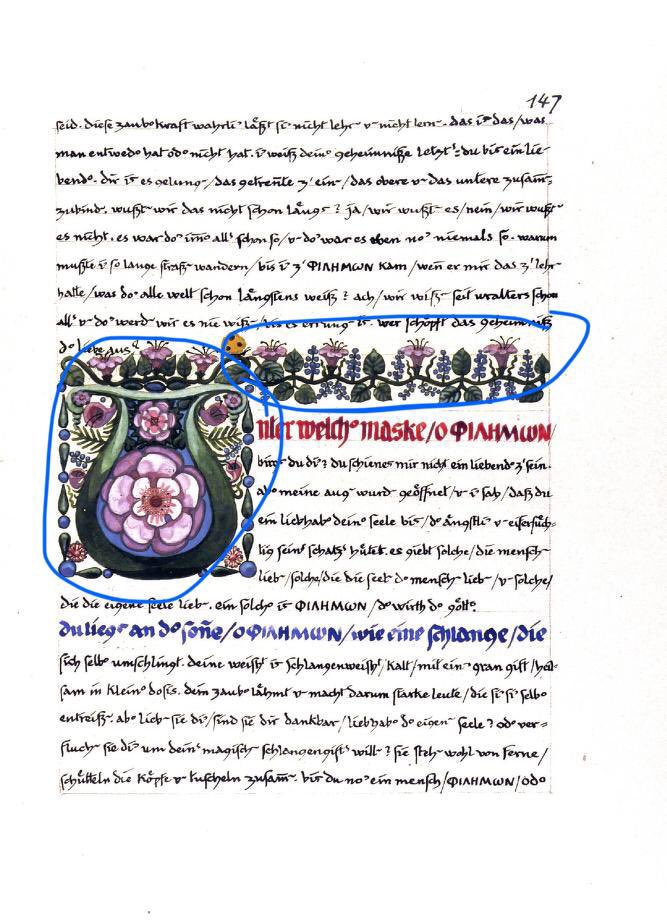 147
seid. diese zaubokraft wahrli' läßt si' nicht lehr' v' nicht lern'. das i' das/was
man entwedo hat odo nicht hat. i' weiß dein' geheimniße letzt': du bis' ein lie-
bendo. dir is' es gelung'/das getrenle z' ein'/das obere v' das untere zusam=
zubind'. wußt' wir das nicht schon läng'? ja/wir wußt' es/nein/wir wußt'
es nicht. es war do' imo all' schon so/v' do' war es eben no' niemals so. warum
mußte i' so lange straß' wandern/bis i' z' ΦΙΛΗΜΩΝ kam/wen er mir das z' lehr'
hatte/was do' alle welt schon längstens weiß? ach/wir wiß' seit uralters schon
all' v' do' werd' wir es nie wiß' is' wer schöpft das geheimniß
do liebe aus?
unter welch' maske/o ΦΙΛΗΜΩΝ
birgs' du di'? du schienes' mir nicht ein liebendo z' sein.
abo meine aug' wurd' geöffnet/v' i' sah/daß du
ein liebhabo deino' seele bis'/do ängstli' v' eifersüch-
tig sein' schatz' hütet. es giebt solche/die mensch'
lieb'/solche/die die seel' do mensch' lieb'/v' solche/
die die eigene seele lieb'. ein solcho is' ΦΙΛΗΜΩΝ/do wirth do götto.
du liegs' an do soñe/o ΦΙΛΗΜΩΝ/wie eine schlange/die
sich selbo umschlingt. deine weisht' is' schlangenweisht'/kalt/mit ein' gran gift/heil-
sam in kleino dosis. dein zaubo lähmt v' macht darum starke leute/die si' si' selbo
entreiß'. abo lieb' sie di'/sind sie dir dankbar/liebhabo do eigen' seele? odo ver=
fluch' sie di' um dein' magisch' schlangengift' will'? sie steh' wohl von ferne/
schütteln die köpfe v' tuscheln zusam'. bis' du no' ein mensch/ΦΙΛΗΜΩΝ/odo